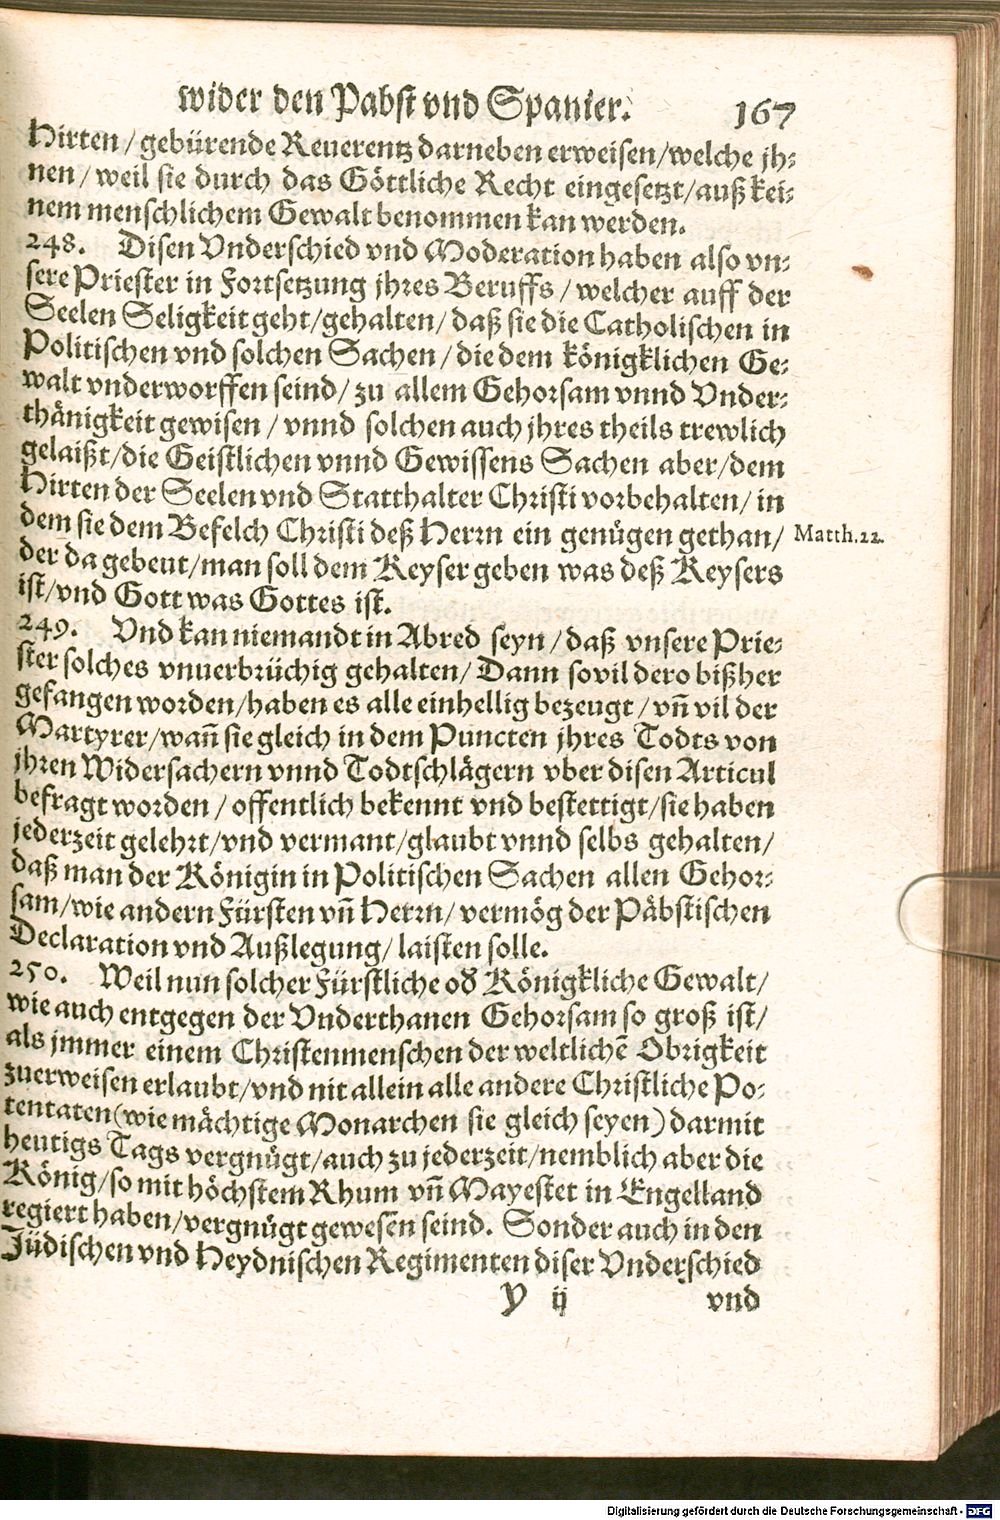 wider den Pabst vnd Spanier. 167
Hirten / gebürende Reuerentz darneben erweisen/welche jh-
nen / weil sie durch das Göttliche Recht eingesetzt/auß kei-
nem menschlichem Gewalt benommen kan werden.
248. Disen Vnderschied vnd Moderation haben also vn-
sere Priester in Fortsetzung jhres Beruffs / welcher auff der
Seelen Seligkeit geht/gehalten/ daß sie die Catholischen in
Politischen vnd solchen Sachen / die dem königklichen Ge-
walt vnderworffen seind/ zu allem Gehorsam vnnd Vnder-
thänigkeit gewisen / vnnd solchen auch jhres theils trewlich
gelaißt/die Geistlichen vnnd Gewissens Sachen aber/dem
Hirten der Seelen vnd Statthalter Christi vorbehalten/ in
dem sie dem Befelch Christi deß Herrn ein genügen gethan/
Matth.22.
der da gebeut/man soll dem Keyser geben was deß Keysers
ist/vnd Gott was Gottes ist.
249. Vnd kan niemandt in Abred seyn / daß vnsere Prie-
ster solches vnuerbrüchig gehalten/ Dann sovil dero bißher
gefangen worden/haben es alle einhellig bezeugt / vñ vil der
Martyrer/wañ sie gleich in dem Puncten jhres Todts von
jhren Widersachern vnnd Todtschlägern vber disen Articul
befragt worden / offentlich bekennt vnd bestettigt/sie haben
jederzeit gelehrt/vnd vermant/glaubt vnnd selbs gehalten/
daß man der Königin in Politischen Sachen allen Gehor-
sam/wie andern Fürsten vñ Herrn/ vermög der Päbstischen
Declaration vnd Außlegung/ laisten solle.
250. Weil nun solcher Fürstliche od̕ Königkliche Gewalt/
wie auch entgegen der Vnderthanen Gehorsam so groß ist/
als jmmer einem Christenmenschen der weltlichẽ Obrigkeit
zuerweisen erlaubt/vnd nit allein alle andere Christliche Po-
tentaten(wie mächtige Monarchen sie gleich seyen) darmit
heutigs Tags vergnügt/auch zu jederzeit/nemblich aber die
König/so mit höchstem Rhum vñ Mayestet in Engelland
regiert haben/vergnügt gewesen seind. Sonder auch in den
Jüdischen vnd Heydnischen Regimenten diser Vnderschied
Y ij vnd
Digitalisierung gefördert durch die Deutsche Forschungsgemeinschaft - DFG